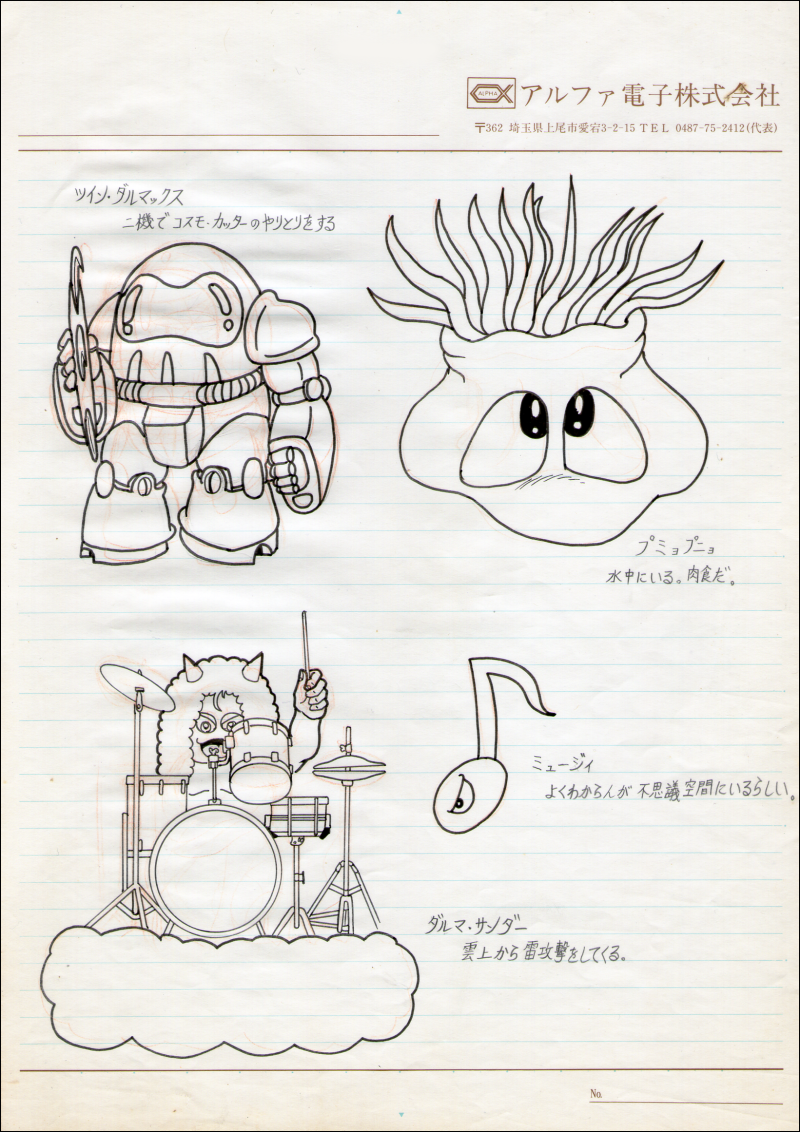 ALPHA
アルファ電子株式会社
〒362 埼玉県上尾市愛宕3-2-15 TEL 0487-75-2412(代表)
ツイン・ダルマックス
二機でコスモ・カッターのやりとりをする
プミョプニョ
水中にいる。肉食だ。
ミュージィ
よくわからんが不思議空間にいるらしい。
ダルマ・サンダー
雲上から雷攻撃をしてくる。
No.